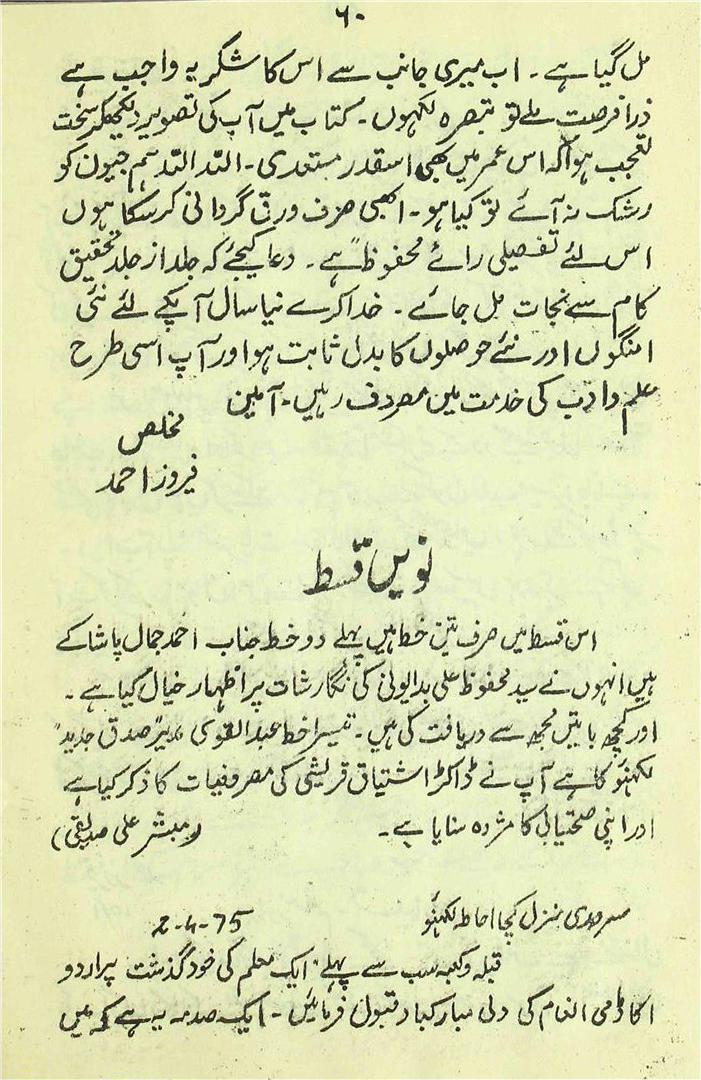 ۶۰
مل گیا ہے ۔ اب میری جانب سے اس کا شکریہ واجب ہے
ذرا فرصت ملے تو تبصرہ لکھوں ۔ کتاب میں آپ کی تصویر دیکھکر سخت
تعجب ہوا کہ اس عمر میں بھی اسقدر مستعدی ۔ اللہ اللہ ہم جیوں کو
رشک نہ آئے تو کیا ہو ۔ ابھی صرف ورق گردانی کرسکا ہوں
اس لئے تفصیلی رائے محفوظ ہے ۔ دعا کیجئے کہ جلد از جلد تحقیق
کام سے نجات مل جائے ۔ خدا کرے نیا سال آپکے لئے نئی
امنگوں اور نئے حوصلوں کا بدل ثابت ہو اور آپ اسی طرح
علم و ادب کی خدمت میں مصروف رہیں ۔ آمین
مخلص
فیروز احمد
نویں قسط
اس قسط میں صرف تین خط ہیں پہلے دو خط جناب احمد جمال پاشا کے
ہیں انہوں نے سید محفوظ علی بدایونی کی نگارشات پر اظہار خیال کیا ہے ۔
اور کچھ باتیں مجھ سے دریافت کی ہیں ۔ تیسرا خط عبدالقوی مدیر "صدق جدید"
لکھنؤ کا ہے آپ نے ڈاکٹر اشتیاق قریشی کی مصروفیات کا ذکر کیا ہے
اور اپنی صحتیابی کا مژدہ سنایا ہے ۔ (مبشر علی صدیقی)
سرحدی منزل کچا احاطہ لکھنؤ 2-4-75
قبلہ و کعبہ سب سے پہلے "ایک معلم کی خود گذشت پر اردو
اکاڈمی انعام کی دلی مبارکباد قبول فرمائیں ۔ ایک صدمہ یہ ہے کہ میں